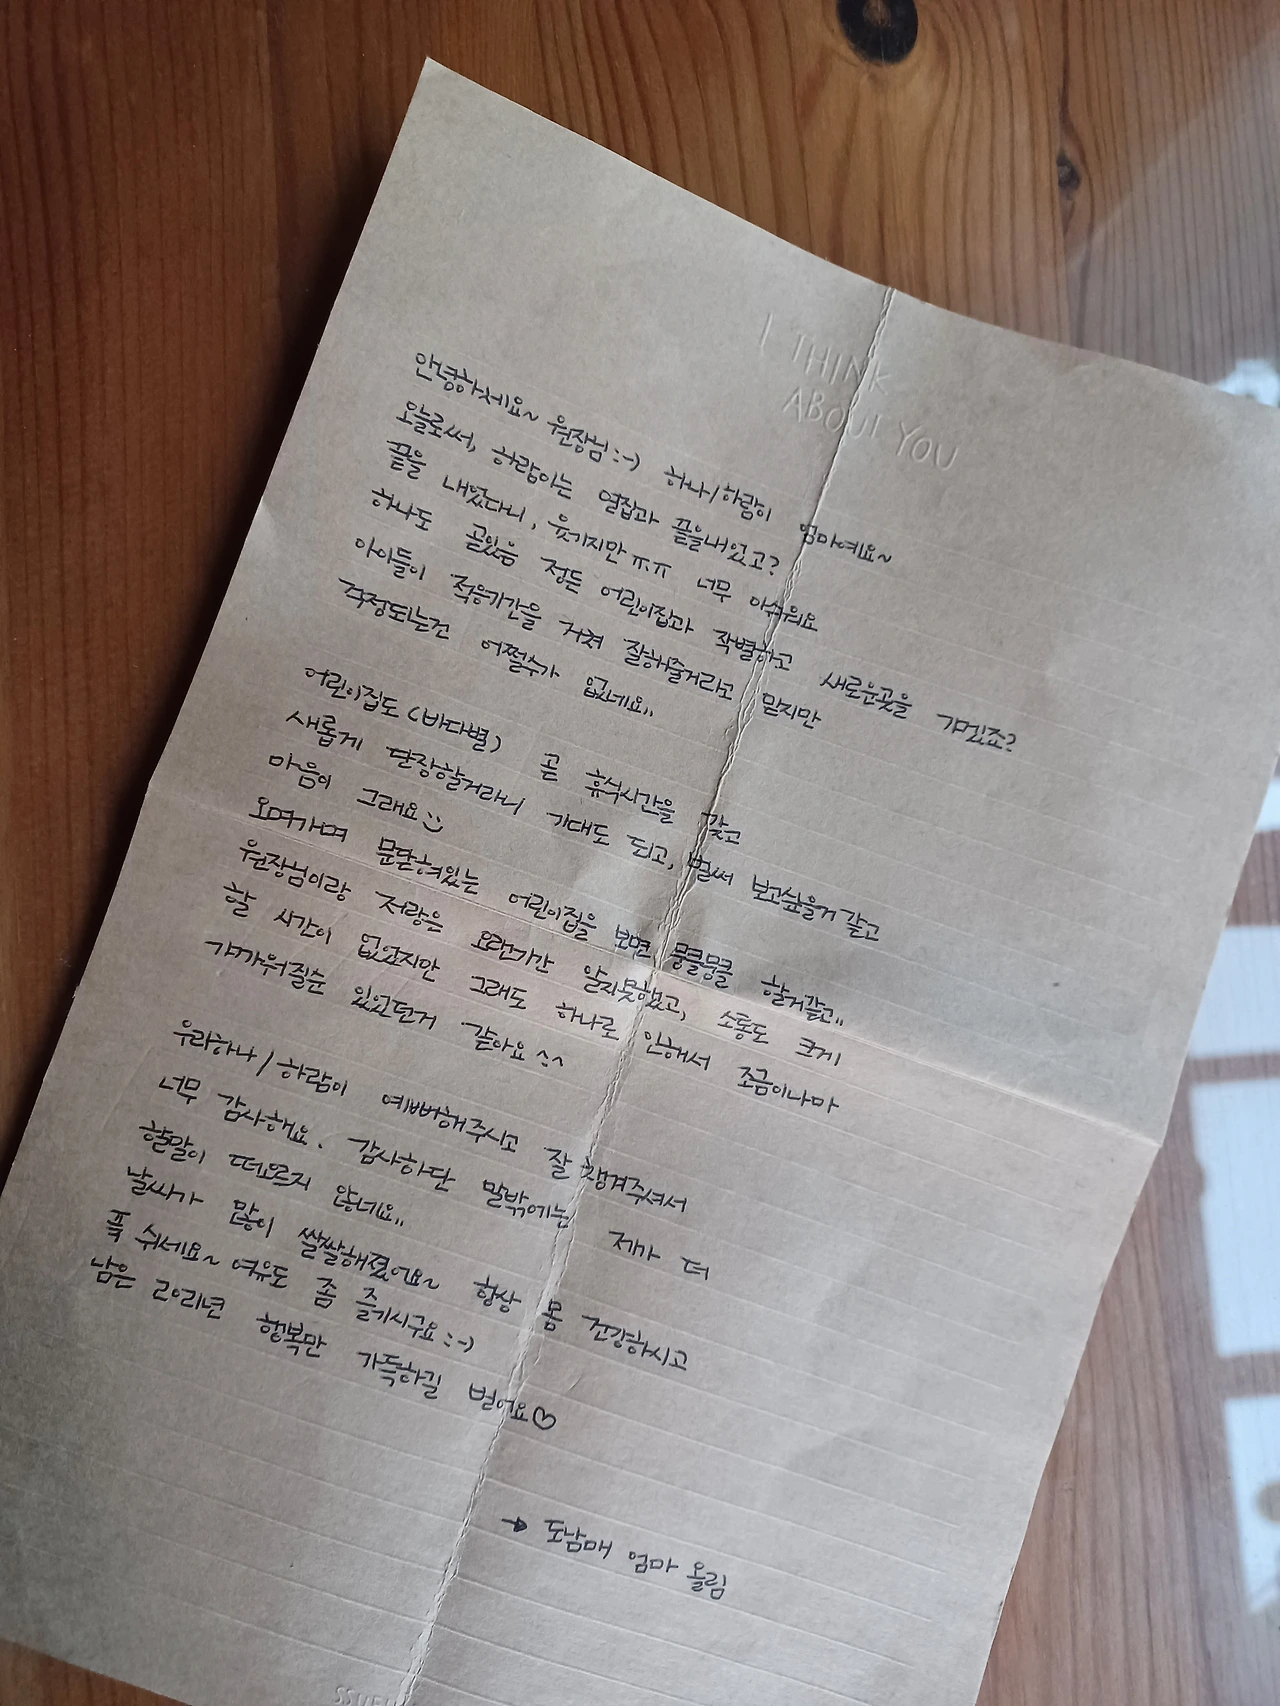 I THINK
ABOUT YOU
안녕하세요~ 원장님 :-) 하나/하람이 엄마예요~
오늘로써, 하람이는 열집과 끝을내었고?
끝을 내었다니, 웃기지만 ㅠㅠ 너무 아쉬워요
하나도 곧있음 정든 어린이집과 작별하고 새로운곳을 가겠죠?
아이들이 적응기간을 거쳐 잘해줄거라고 믿지만
걱정되는건 어쩔수가 없네요..
어린이집도 (바다별) 곧 휴식시간을 갖고
새롭게 단장할거라니 기대도 되고, 벌써 보고싶을거 같고
마음이 그래요
오며가며 문닫혀있는 어린이집을 보면 뭉클뭉클 할거같고..
원장님이랑 저랑은 오랜기간 알지못했고, 소통도 크게
할 시간이 없었지만 그래도 하나로 인해서 조금이나마
가까워질순 있었던거 같아요 ^^
우리하나/하람이 예뻐해주시고 잘 챙겨주셔서
너무 감사해요. 감사하단 말밖에는 제가 더
할말이 떠오르지 않네요..
날씨가 많이 쌀쌀해졌어요~ 항상 몸 건강하시고
푹 쉬세요~ 여유도 좀 즐기시구요 :-)
남은 2021년 행복만 가득하길 빌어요♡
→ 도남매 엄마 올림